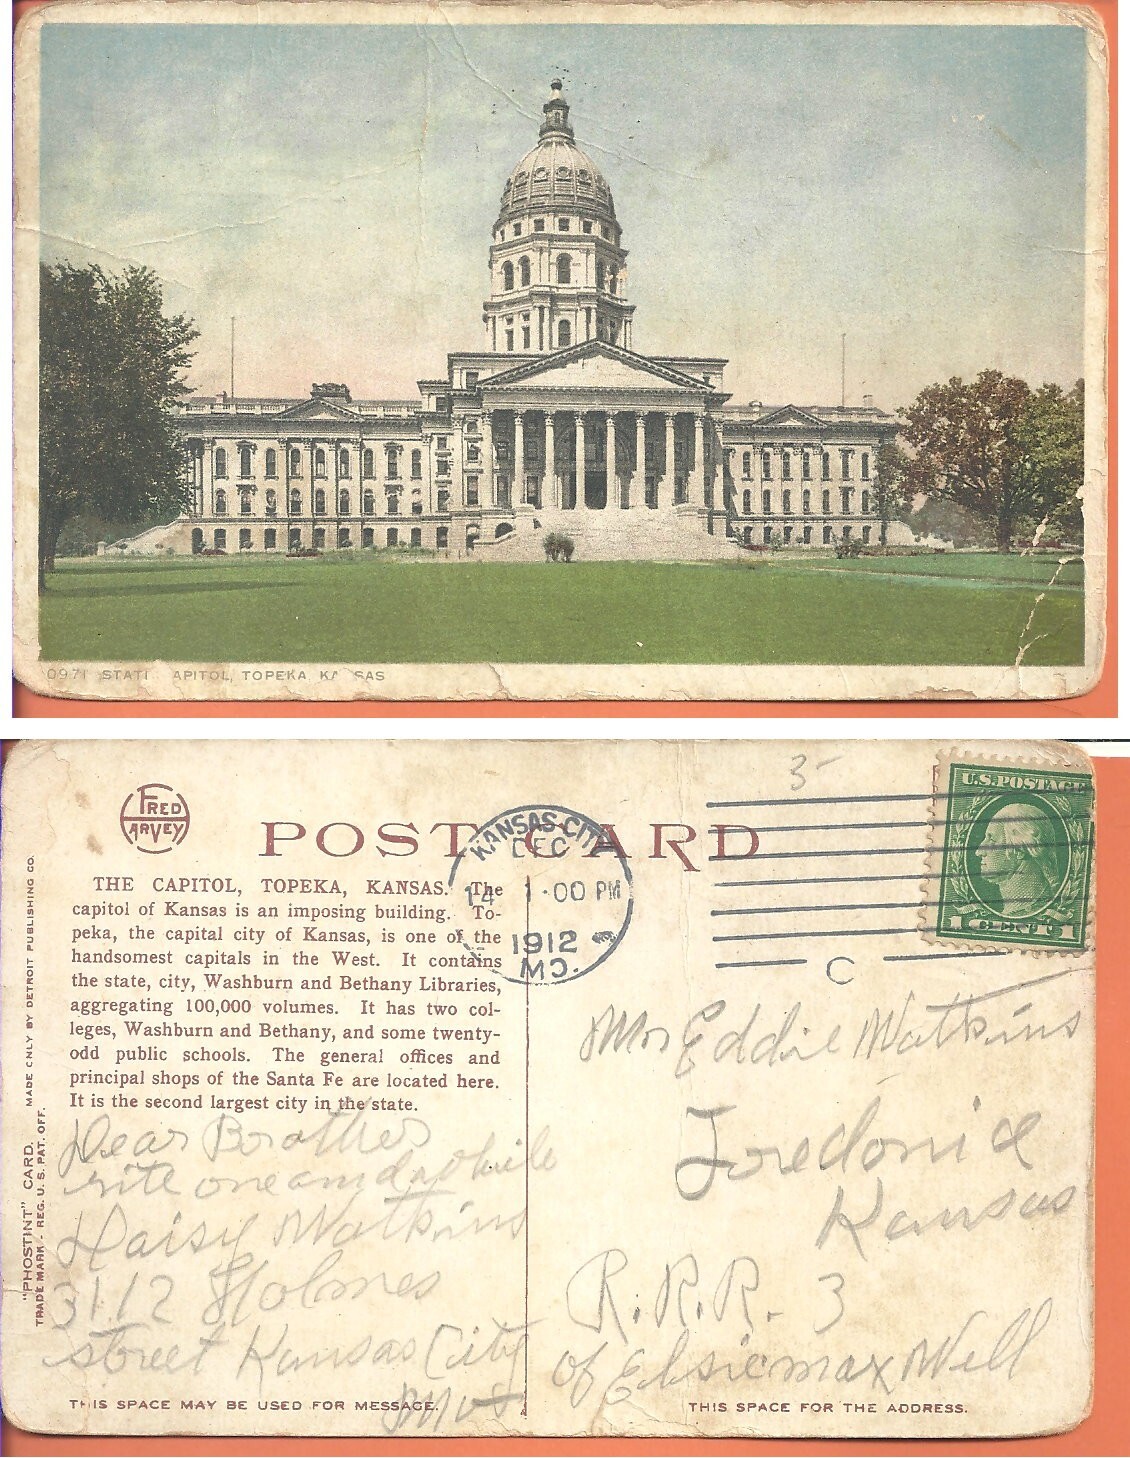 STATE CAPITOL, TOPEKA, KANSAS
FRED
HARVEY
POST CARD
KANSAS CITY
DEC
14 1-00 PM
1912
MO.
C
3-
U.S. POSTAGE
1 CENT 1
THE CAPITOL, TOPEKA, KANSAS. The
capitol of Kansas is an imposing building. To-
peka, the capital city of Kansas, is one of the
handsomest capitals in the West. It contains
the state, city, Washburn and Bethany Libraries,
aggregating 100,000 volumes. It has two col-
leges, Washburn and Bethany, and some twenty-
odd public schools. The general offices and
principal shops of the Santa Fe are located here.
It is the second largest city in the state.
"PHOSTINT" CARD. MADE ONLY BY DETROIT PUBLISHING CO.
TRADE MARK - REG. U.S. PAT. OFF.
Dear Brother
rite one and a while
Daisy Watkins
3112 Holmes
street Kansas City
THIS SPACE MAY BE USED FOR MESSAGE.
Mr Eddie Watkins
Fredonia
Kansas
R.R.R. 3
of
THIS SPACE FOR THE ADDRESS.